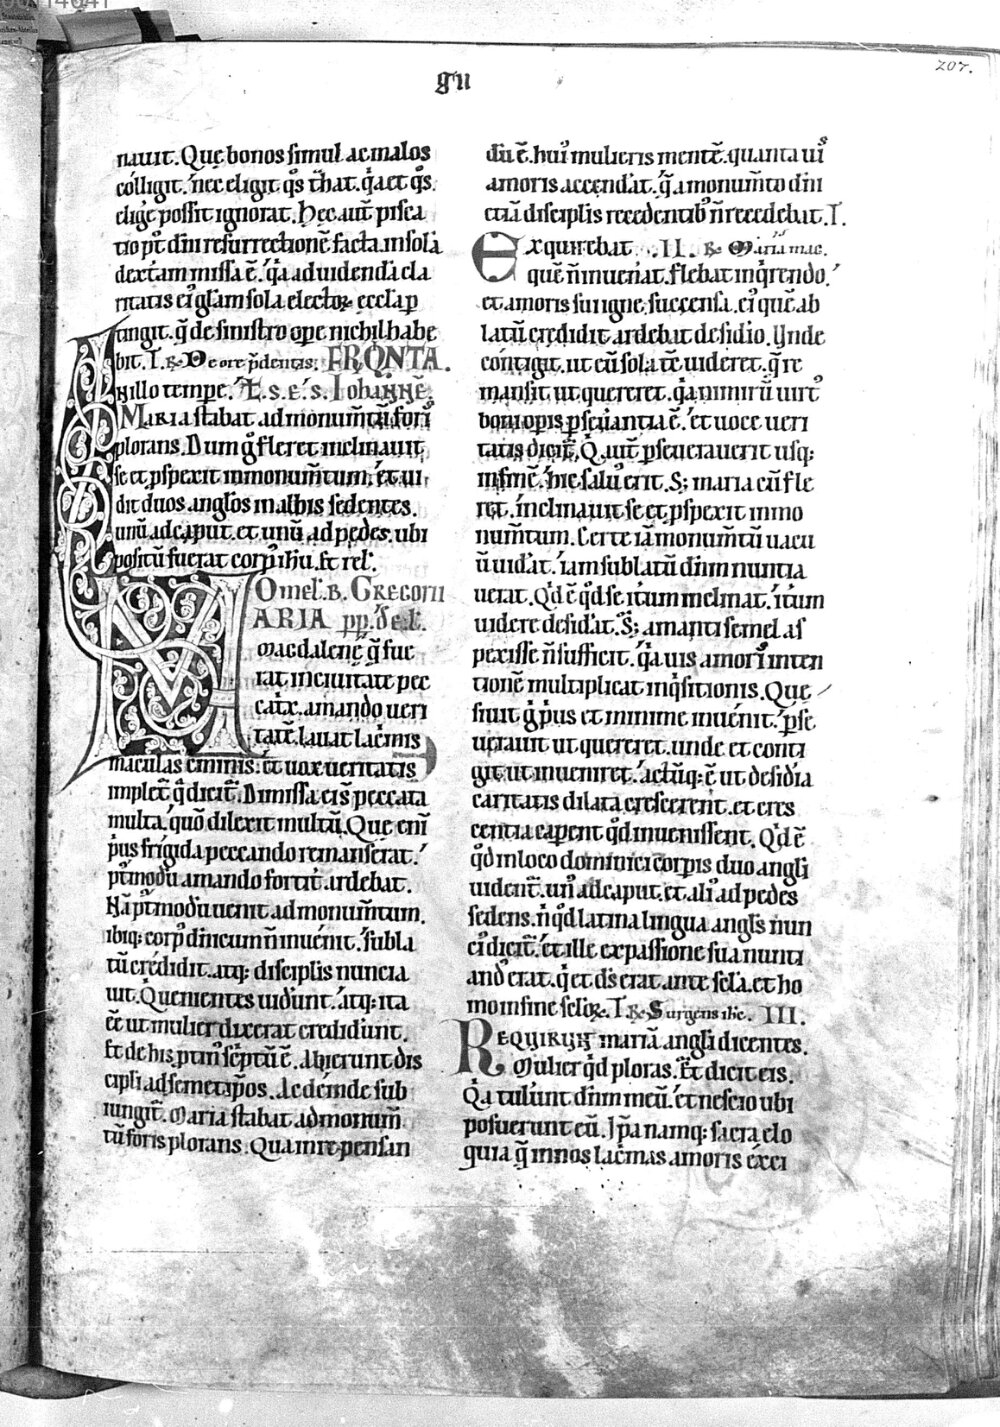 gii
207.
nauit. Quę bonos simul ac malos
cólligit. nec eligit q̄s t̄hat. q̄a et q̄s
eligé possit ignorat. Hęc aut̄ pisca
tio pt̄ dn̄i resurrectionē facta. in solā
dext̄am missa ē. q̄a ad uidendā cla
ritatis ei᾽ gl̄am sola electoꝝ eccl̄a p
tingit. q̄ de sinistro oꝑe nichil habe
bit. I. ℞. De ore p̄dentis. FER. QNTA.
N illo tempe. L. S. E. S. Iohannē.
MARIA stabat ad monumt̄ū foris
plorans. Dum ḡ fleret inclinauit
se et ꝓspexit in monum̄tum. et ui
dit duos angl̄os in albis sedentes.
unū ad caput. et unū ad pedes. ubi
positū fuerat corp᾽ ih̄u. Et rel᾽.
Omel᾽. B. GREGORII
MARIA pp. de. l.
magdalenę q̄ fue
rat in ciuitate pec
catꝰx. amando ueri
tatē. lauat lac̄mis
maculas c̄iminis: et uox ueritatis
implet̄. q̄ dicit̄. Dimissa ei s̄ peccata
multa. quō dilexit multū. Quę eni
p̄us frigida peccando remanserat.
pt̄modū amando fortit̄ ardebat.
Nā pt̄modū uenit ad monum̄tum.
ibiq; corp᾽ dn̄icum n̄ inuénit. subla
tū crédidit. atq; discipl̄is nuncia
uit. Qui uenientes uidūnt. atq; ita
ēē ut mulier dixerat credidūnt.
Et de his ptin᾽ sc̄ptū ē. Abierunt dis
cipl̄i ad semetip̄os. Ac déinde sub
iungit᾽. Maria stabat ad monum̄
tū foris plorans. Qua in re pensan
dū ē. hui᾽ mulieris mentē. quanta uis
amoris accend᾽at. q̄ a monum̄to dn̄i
etiā discipl̄is recedentib᾽ n̄ recedebat. I.
Exquirebat II. ℞. Maria mag.
quē n̄ inuen᾽at. flebat inq̄rendo.
et amoris sui igne succensa. ei᾽ quē ab
latū credidit ardebat desid᾽io. Vnde
cóntigit. ut eū sola tc̄ uideret. q̄ re
mansit ut quereret. q̄a nimirū uirt᾽
boni opis ꝑseuerantia ē. et uoce ueri
tatis dicit̄. Q. aut̄ ꝑseuerauerit usq;
in finē. hic salu᾽ erit. S; maria cū fle
ret. inclinauit se et ꝓspexit in mo
num̄tum. Certe iā monum̄tū uacu
ū uid᾽at. iam sublatū dn̄m nuntia
uerat. Q᾽d ē q᾽d se it᾽um inclinat. it᾽um
uidere desid᾽at. S; amanti semel as
pexisse n̄ sufficit. q̄a uis amoris inten
tionē multiplicat inq̄sitionis. Que
siuit ḡ p̄us et minime inuénit. ꝑse
uerauit ut quereret. unde et conti
git ut inueniret. actūq; ē ut desid᾽ia
caritatis dilata crescerent. et cres
centia caperent q᾽d inuenissent. Q᾽d ē
q᾽d in loco dominici corp̄is duo angl̄i
uident᾽. un᾽ ad caput. et ali᾽ ad pedes
sedens. n̄ q᾽d latina lingua angl̄s nun
ci᾽ dicit᾽. et ille ex passione sua nunti
and᾽ erat. q̄ et d̄s erat ante scl̄a. et ho
mo in fine scl̄oꝝ. T. ℞. Surgens ihc. III.
REQUIRUN maríā angl̄i dicentes.
Mulier q᾽d ploras. Et dicit eis.
Q̄a tulūnt dn̄m meū. et nescio ubi
posuerunt eū. Ip̄a namq; sacra elo
quia q̄ in nos lac̄mas amoris éxci